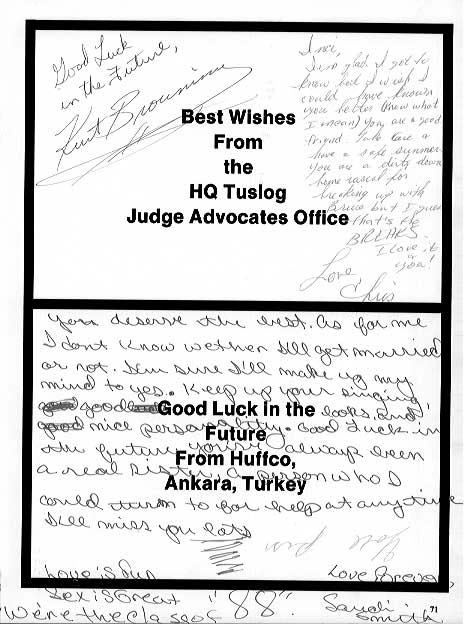 Good Luck
in the Future,
Kurt Browning
Best Wishes
From
the
HQ Tuslog
Judge Advocates Office
Inci,
I'm so glad I got to
know but I wish I
could have known
you better (know what
I mean) you are a good
friend take care &
have a safe summer
You are a dirty down
home rascal for
breaking up with
Bruce but I guess
that's the
BREAKS.
I love it
& you!
Love,
Chris
You deserve the best. As for me
I dont know wether I'll get married
or not. I'm sure I'll make up my
mind to yes. Keep up your singing,
good looks, and
nice personality. Good Luck in
the future you've always been
a real sister, a person who I
could turn to for help at anytime
I'll miss you lots
Good Luck in the
Future
From Huffco,
Ankara, Turkey
Love is fun
Sex is Great
We're the class of "88".
Love
Sandi
Smith
71